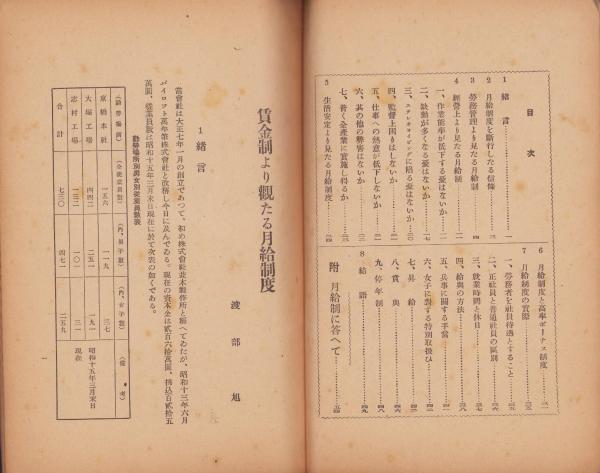 目次
1 緒言
2 月給制度を斷行したる信條
3 勞務管理より見たる月給制
4 經營上より見たる月給制
一、作業能率が低下する憂はないか
二、缺勤が多くなる憂はないか
三、エチレタイゼシングに陷る憂はないか
四、監督上困りはしないか
五、仕事への熱意が低下しないか
六、其の他の弊害はないか
七、普く全產業に實施し得るか
5 生活安定より見たる月給制度
6 月給制度と高率ボーナス制度
7 月給制度の實際
一、勞務者を社員待遇とすること
二、正社員と普通社員の區別
三、就業時間と休日
四、給與の方法
五、兵事に關する手當
六、女子に對する特別取扱ひ
七、昇給
八、賞與
九、停年制
8 結語
附 月給制に答へて
賃金制より觀たる月給制度
渡部 旭
1 緒言
當會社は大正七年一月の創立であつて、初め株式會社並木製作所と稱へてゐたが、昭和十三年六月
パイロット萬年筆株式會社と改稱し今日に及んでゐる。現在の資本金は貳百六拾萬圓、拂込百貳拾五
萬圓、從業員數は昭和十五年三月末日現在に於て次表の如くである。
勤勞場所別男女別從業員數表
(勤勞場所) (全從業員數) (內、男子數) (內、女子數) (備考)
京橋本社 一五六 一一九 三七
大塚工場 四四二 二五一 一九一 昭和十五年三月末日
志村工場 一三二 一〇一 三一 現在
合計 七三〇 四七一 二五九